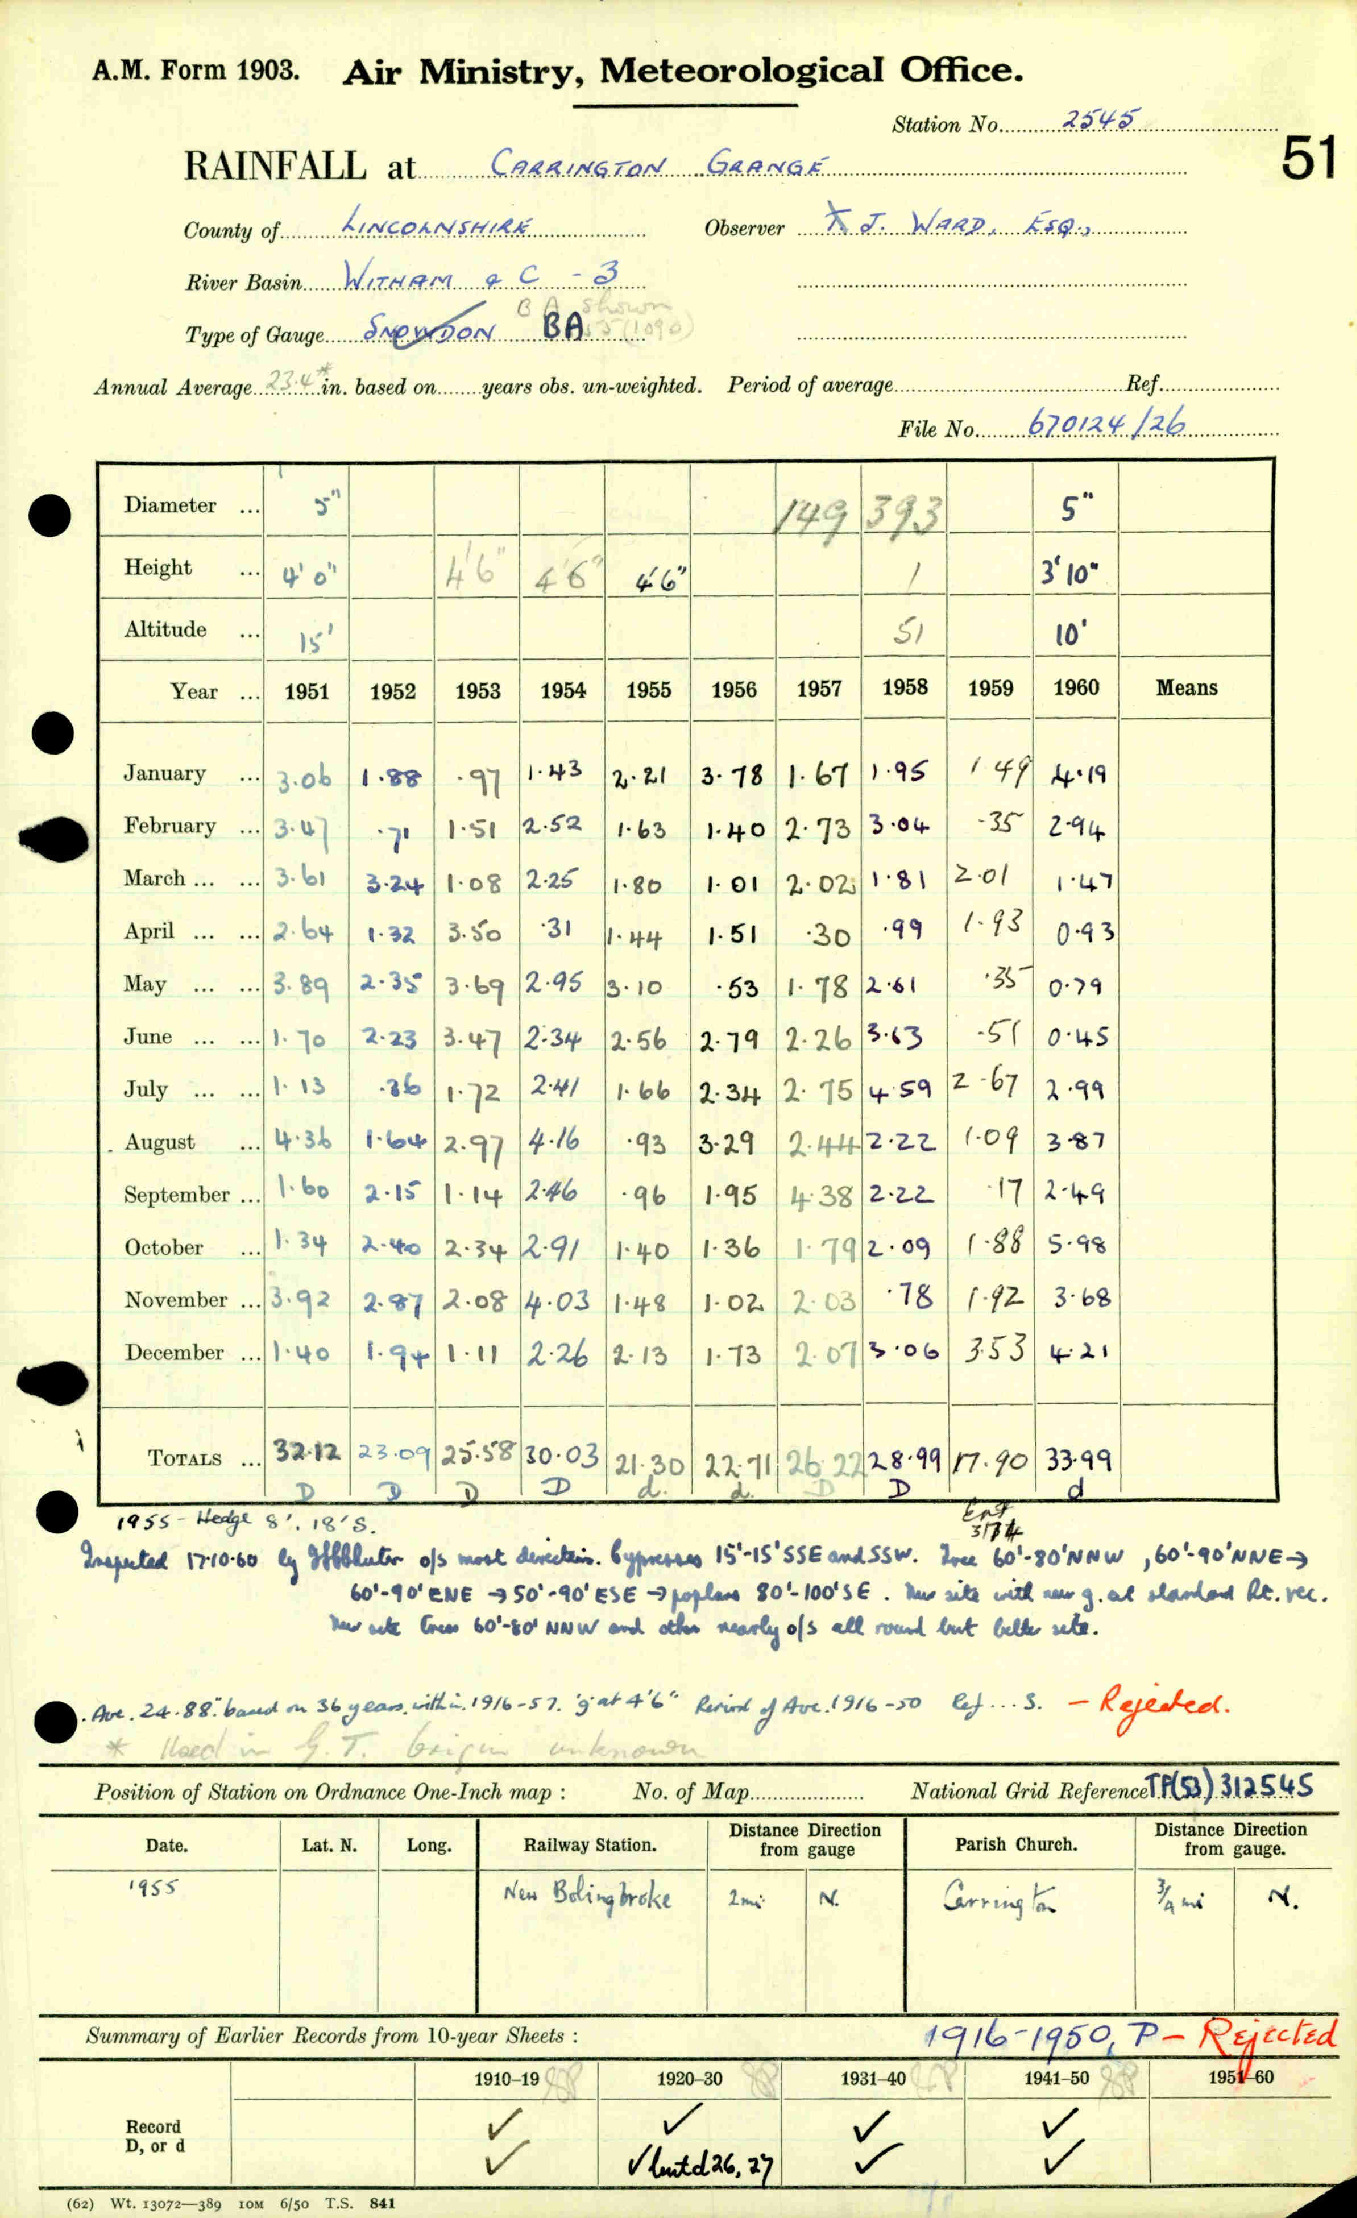 A.M. Form 1903. Air Ministry, Meteorological Office.
Station No. 2545
51
RAINFALL at CARRINGTON GRANGE
County of LINCOLNSHIRE Observer J. WARD, ESQ.,
River Basin WITHAM & C - 3
BA shown
Type of Gauge SNOWDON BA (1090)
Annual Average 23.4* in. based on years obs. un-weighted. Period of average Ref.
File No. 670124/26
Diameter ... 5" 149 393 5"
Height ... 4'0" 4'6" 4'6" 4'6" 1 3'10"
Altitude ... 15' 51 10'
Year ... 1951 1952 1953 1954 1955 1956 1957 1958 1959 1960 Means
January ... 3.06 1.88 .97 1.43 2.21 3.78 1.67 1.95 1.49 4.19
February ... 3.47 .71 1.51 2.52 1.63 1.40 2.73 3.04 .35 2.94
March ... ... 3.61 3.24 1.08 2.25 1.80 1.01 2.02 1.81 2.01 1.47
April ... ... 2.64 1.32 3.50 .31 1.44 1.51 .30 .99 1.93 0.93
May ... ... 3.89 2.35 3.69 2.95 3.10 .53 1.78 2.61 .35 0.79
June ... ... 1.70 2.23 3.47 2.34 2.56 2.79 2.26 3.63 .51 0.45
July ... ... 1.13 .36 1.72 2.41 1.66 2.34 2.75 4.59 2.67 2.99
August ... 4.36 1.64 2.97 4.16 .93 3.29 2.44 2.22 1.09 3.87
September ... 1.60 2.15 1.14 2.46 .96 1.95 4.38 2.22 .17 2.49
October ... 1.34 2.40 2.34 2.91 1.40 1.36 1.79 2.09 1.88 5.98
November ... 3.92 2.87 2.08 4.03 1.48 1.02 2.03 .78 1.92 3.68
December ... 1.40 1.94 1.11 2.26 2.13 1.73 2.07 3.06 3.53 4.21
TOTALS ... 32.12 23.09 25.58 30.03 21.30 22.71 26.22 28.99 17.90 33.99
D D D D d. d. D D d
1955 - Hedge 8'. 18'S.
Inspected 17.10.60 by o/s most direction. Cypresses 15'-15' SSE and SSW. Tree 60'-80' NNW, 60'-90' NNE →
60'-90' ENE → 50'-90' ESE → poplars 80'-100' SE. New site with new g. at standard ht. rec.
New site trees 60'-80' NNW and other nearly o/s all round but better site.
Ave. 24.88" based on 36 years within 1916-57. 'g' at 4'6" Period of Ave. 1916-50 Ref ... S. - Rejected.
* Used in G.T. origin unknown
Position of Station on Ordnance One-Inch map : No. of Map National Grid Reference TF(53) 312545
Date. Lat. N. Long. Railway Station. Distance from Direction gauge Parish Church. Distance from Direction gauge.
1955 New Bolingbroke 2mi N. Carrington 3/4 mi N.
Summary of Earlier Records from 10-year Sheets : 1916-1950, P - Rejected
1910-19 1920-30 1931-40 1941-50 1951-60
Record ✓ ✓ ✓ ✓
D, or d ✓ ✓ but d 26, 27 ✓ ✓
(62) Wt. 13072—389 10M 6/50 T.S. 841